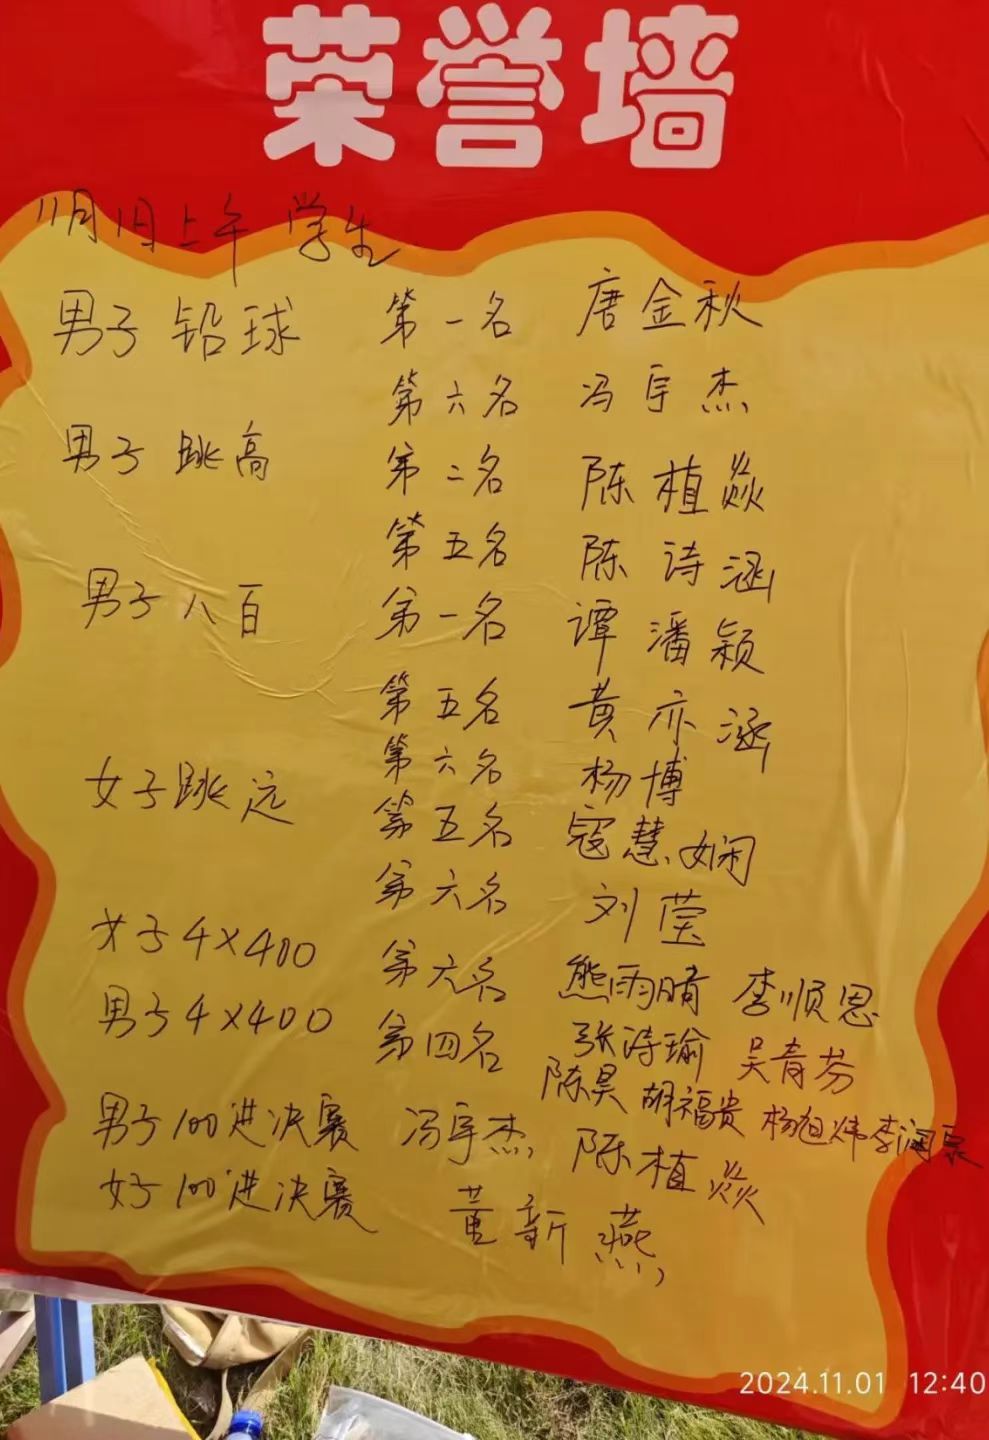 荣誉墙
11月1日上午 学生
男子 铅球 第一名 唐金秋
第六名 冯宇杰
男子 跳高 第二名 陈植焱
第五名 陈诗涵
男子八百 第一名 谭潘颖
第五名 黄亦涵
第六名 杨博
女子跳远 第五名 寇慧娴
第六名 刘莹
女子4×400 第六名 熊雨晴 李顺恩
张诗瑜 吴青芬
男子4×400 第四名 陈昊 胡福贵 杨旭炜 李润泉
男子100进决赛 冯宇杰 陈植焱
女子100进决赛 董新燕
2024.11.01 12:40